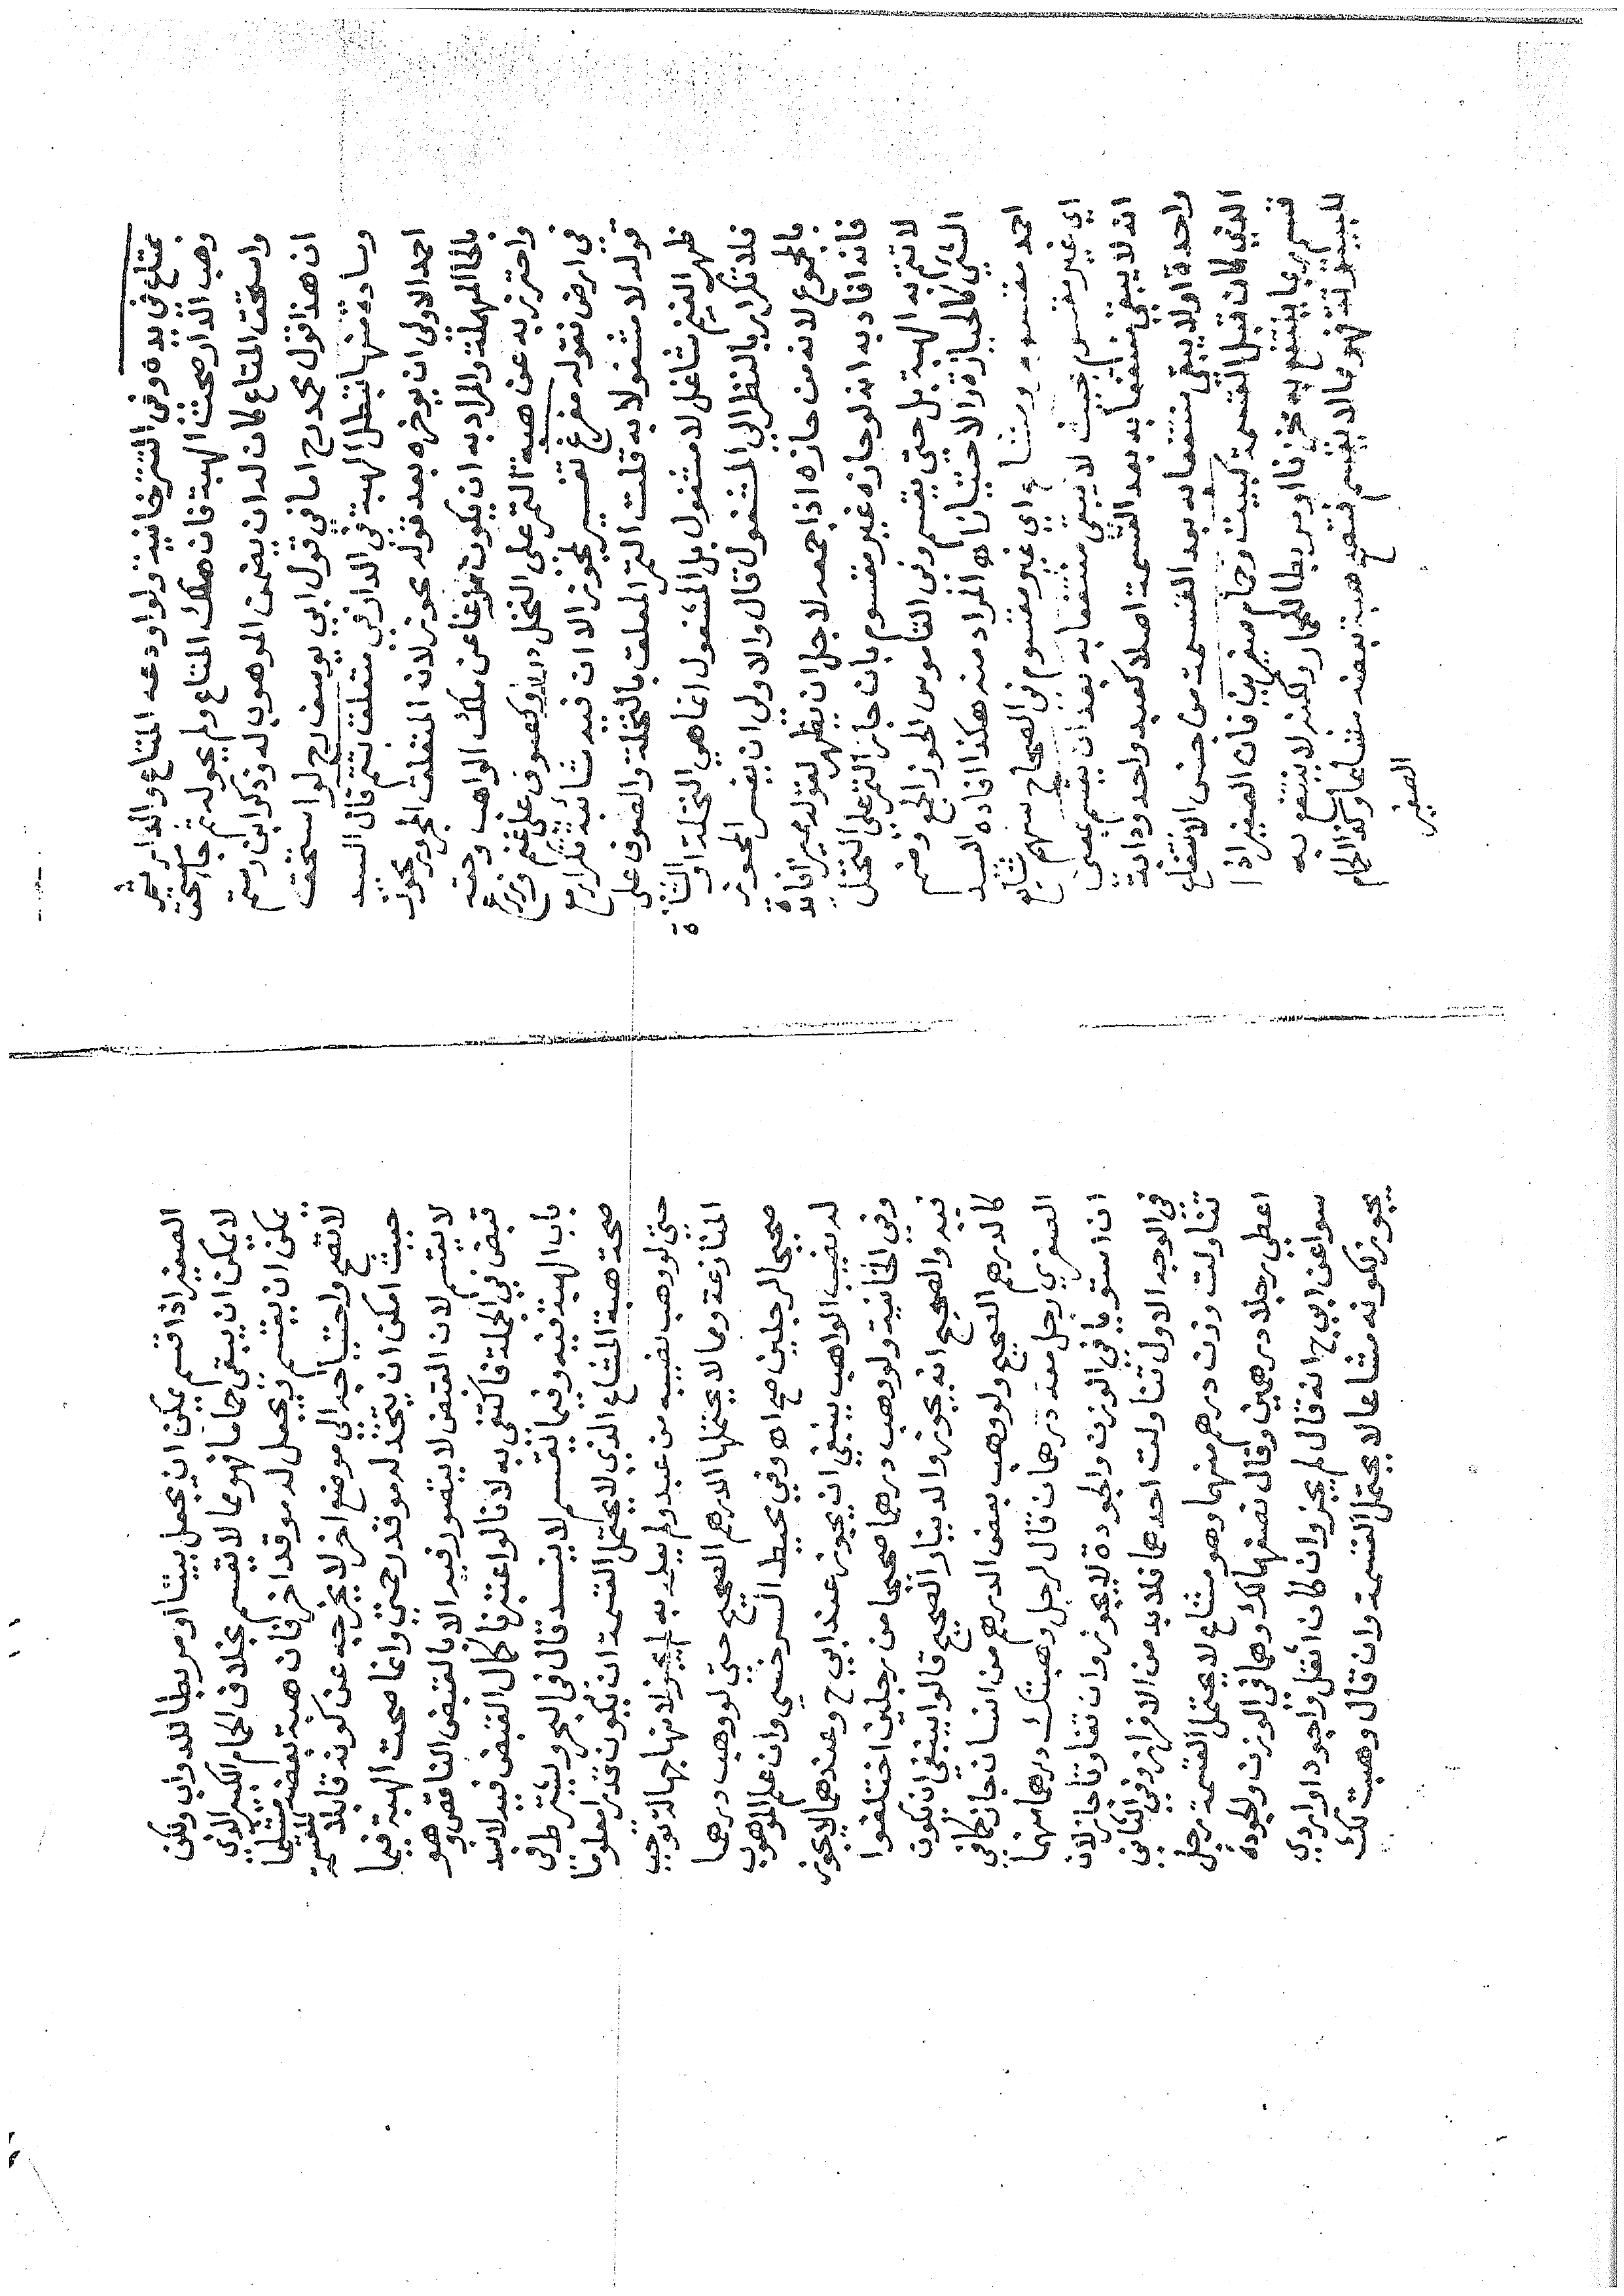 بمتاع في يده وفي التترخانية ولو اودعه المتاع والدار ثم
وهب الدار صحت الهبة فان هلك المتاع ولم يحوله ثم جا مستحق
واستحق المتاع كان له ان يضمن الموهوب له وذكر ابن رستم
ان هذا قول محمد رح اما في قول ابي يوسف رح لو استحقت
وسادة منها تبطل الهبة في الدار في متعلقت بتتم قال السيد
احمد الاولى ان يوخره بعد قوله محوز لان المتعلق المجرور بحوز
بالحا المهملة والمراد به ان يكون مفرغا عن ملك الواهب وحقه
واحترز به عن هبة التمر على النخل وكصوف على غنم وزرع
في ارض فقوله مفرغ تفسير لمحوز الا ان فيه شائبة تكرار مع
قوله لا مشغولا به قلت التمر المعلق بالنخلة والصوف على
ظهر الغنم شاغل لا مشغول بل المشغول انما هي النخلة او الشاة
فلا تكرار بالنظر الي المشغول قال والاولى ان يفسر المحوز
بالمجموع لانه من حازه اذا جمعه لاجل ان يظهر لقوله مميز افادة
فانه افاد به انه لو حازه غير مقسوم بان حاز التمر على النخل
لا تتم به الهبة بل حتى يقسم وفي القاموس الحوز الجمع وضم
الشي كالحيازة والاحتياز اه المراد منه هكذا افاده السيد
احمد مقسوم ومشاع اي غير مقسوم في الصحاح سهم شائع
اي غير مقسوم بحيث لا يبقى منتفعا به بعد ان يقسم بمعنى
انه لا يبقى منتفعا به بعد القسمة اصلا كعبد واحد ودابة
واحدة او لا يبقى منتفعا به بعد القسمة من جنس الانتفاع
الذي كان قبل القسمة كبيت وحمام صغيرين فان الصغير اذا
قسم ربما ينتفع به مخزنا او مربطا للحمار ولكنه لا ينتفع به
للبيتوتة فهو مما لا يقسم فتصح هبة بعضه مشاعا وكذا الحمام
الصغير
الصغير اذا قسم يمكن ان يجعل بيتا او مربطا للدواب ولكن
لا يمكن ان يبقى حماما فهو مما لا يقسم بخلاف الحمام الكبير الذي
يمكن ان يقسم ويجعل له موقد اخر فان هبة بعضه مشاعا
لا تصح واحتياجه الي موضع اخر لا يخرجه عن كونه قابلا للقسمة
حيث امكن ان يتخذ له موقد رحمتي وانما صحت الهبة فيما
لا يقسم لان القبض لا يتصور فيه الا بالقبض الناقص وهو
قبض في الجملة فاكتفي به لانا لو اعتبرنا كمال القبض فيه لانسد
باب الهبة فيه وفيما يقسم لا ينسد قال في البحر ويشترط في
صحة هبة المشاع الذي لا يحتمل القسمة ان يكون قدرا معلوما
حتى لو وهب نصيبه من عبد ولم يعلم به لم يجز لانها جهالة توجب
المنازعة ومما لا يحتملها الدرهم الصحيح حتى لو وهب درهما
صحيحا لرجلين صح اه وفي محيط السرخسي وان علم الموهوب
له نصيب الواهب ينبغي ان يجوز عند ابي ح وعندهما لا يجوز
وفي الخانية ولو وهب درهما صحيحا من رجلين اختلفوا
فيه والصحيح انه يجوز والدينار الصحيح قالوا ينبغي ان يكون
كالدرهم الصحيح ولو وهب بعض الدرهم من انسان جاز كما في
الصغري رجل معه درهمان قال لرجل وهبتك درهما منهما
ان استويا في الوزن والجودة لا يجوز وان تفاوتا جاز لان
في الوجه الاول تناولت احدهما فلا بد من الافراز وفي الثاني
تناولت وزن درهم منهما وهو مشاع لا يحتمل القسمة رجل
اعطى رجلا درهمين وقال نصفهما لك وهما في الوزن والجودة
سوا عن ابي ح انه قال لم يجز وان كان أثقل واجود او اردي
يجوز لكونه مشاعا لا يحتمل القسمة وان قال وهبت لك